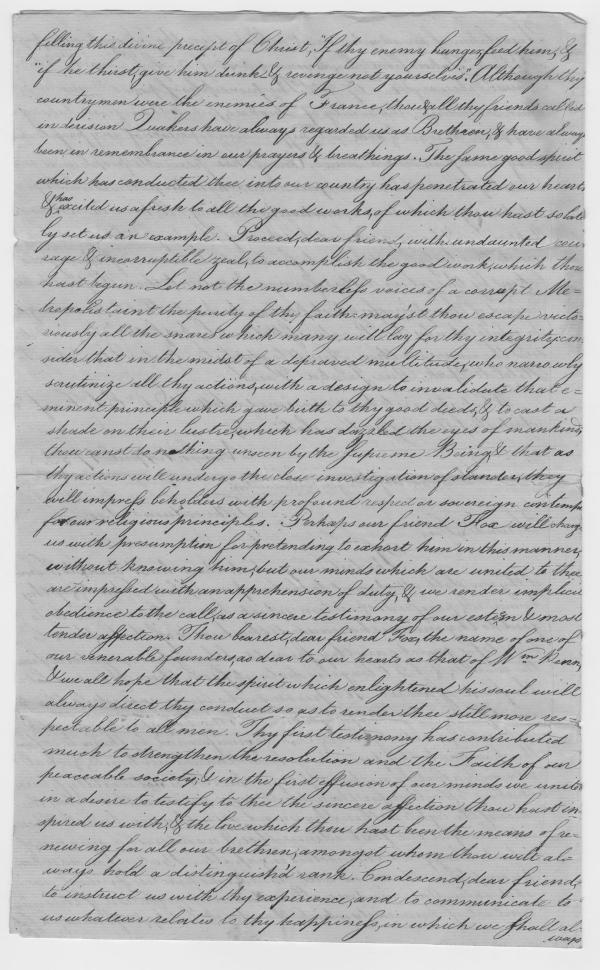 filling this divine precept of Christ, "If thy enemy hunger, feed him, &
"if he thirst, give him drink & revenge not yourselves". Although thy
countrymen were the enemies of France, thou & all thy friends called
in derision Quakers have always regarded us as Brethren, & have always
been in remembrance in our prayers & breathings. The same good spirit
which has conducted thee into our country has penetrated our hearts
& has excited us afresh to all the good works, of which thou hast so late=
ly set us an example. Proceed, dear friend, with undaunted cou=
rage & incorruptible zeal, to accomplish the good work, which thou
hast begun. Let not the numberless voices of a corrupt Me=
tropolis taint the purity of thy faith: may'st thou escape victo=
riously all the snares which many will lay for thy integrity: con
sider that in the midst of a depraved multitude, who narrowly
scrutinize all thy actions, with a design to invalidate that e=
minent principle which gave birth to thy good deeds, & to cast a
shade on their lustre, which has dazzled the eyes of mankind,
thou canst do nothing unseen by the Supreme Being, & that as
thy actions will undergo the close investigation of slander, they
will impress beholders with profound respect or sovereign contempt
for our religious principles. Perhaps our friend Fox will charge
us with presumption for pretending to exhort him in this manner,
without knowing him, but our minds which are united to thee
are impressed with an apprehension of duty, & we render implicit
obedience to the call, as a sincere testimony of our esteem & most
tender affection. Thou bearest, dear friend Fox, the name of one of
our venerable founders, as dear to our hearts as that of Wm Penn,
& we all hope that the spirit which enlightened his soul will
always direct thy conduct so as to render thee still more res=
pectable to all men. Thy first testimony has contributed
much to strengthen the resolution and the Faith of our
peaceable society, & in the first effusion of our minds we unite
in a desire to testify to thee the sincere affection thou hast in
spired us with, & the love which thou hast been the means of re=
newing for all our brethren, amongst whom thou wilt al=
ways hold a distinguish'd rank. Condescend, dear friend,
to instruct us with thy experience, and to communicate to
us whatever relates to thy happiness, in which we shall al=
ways